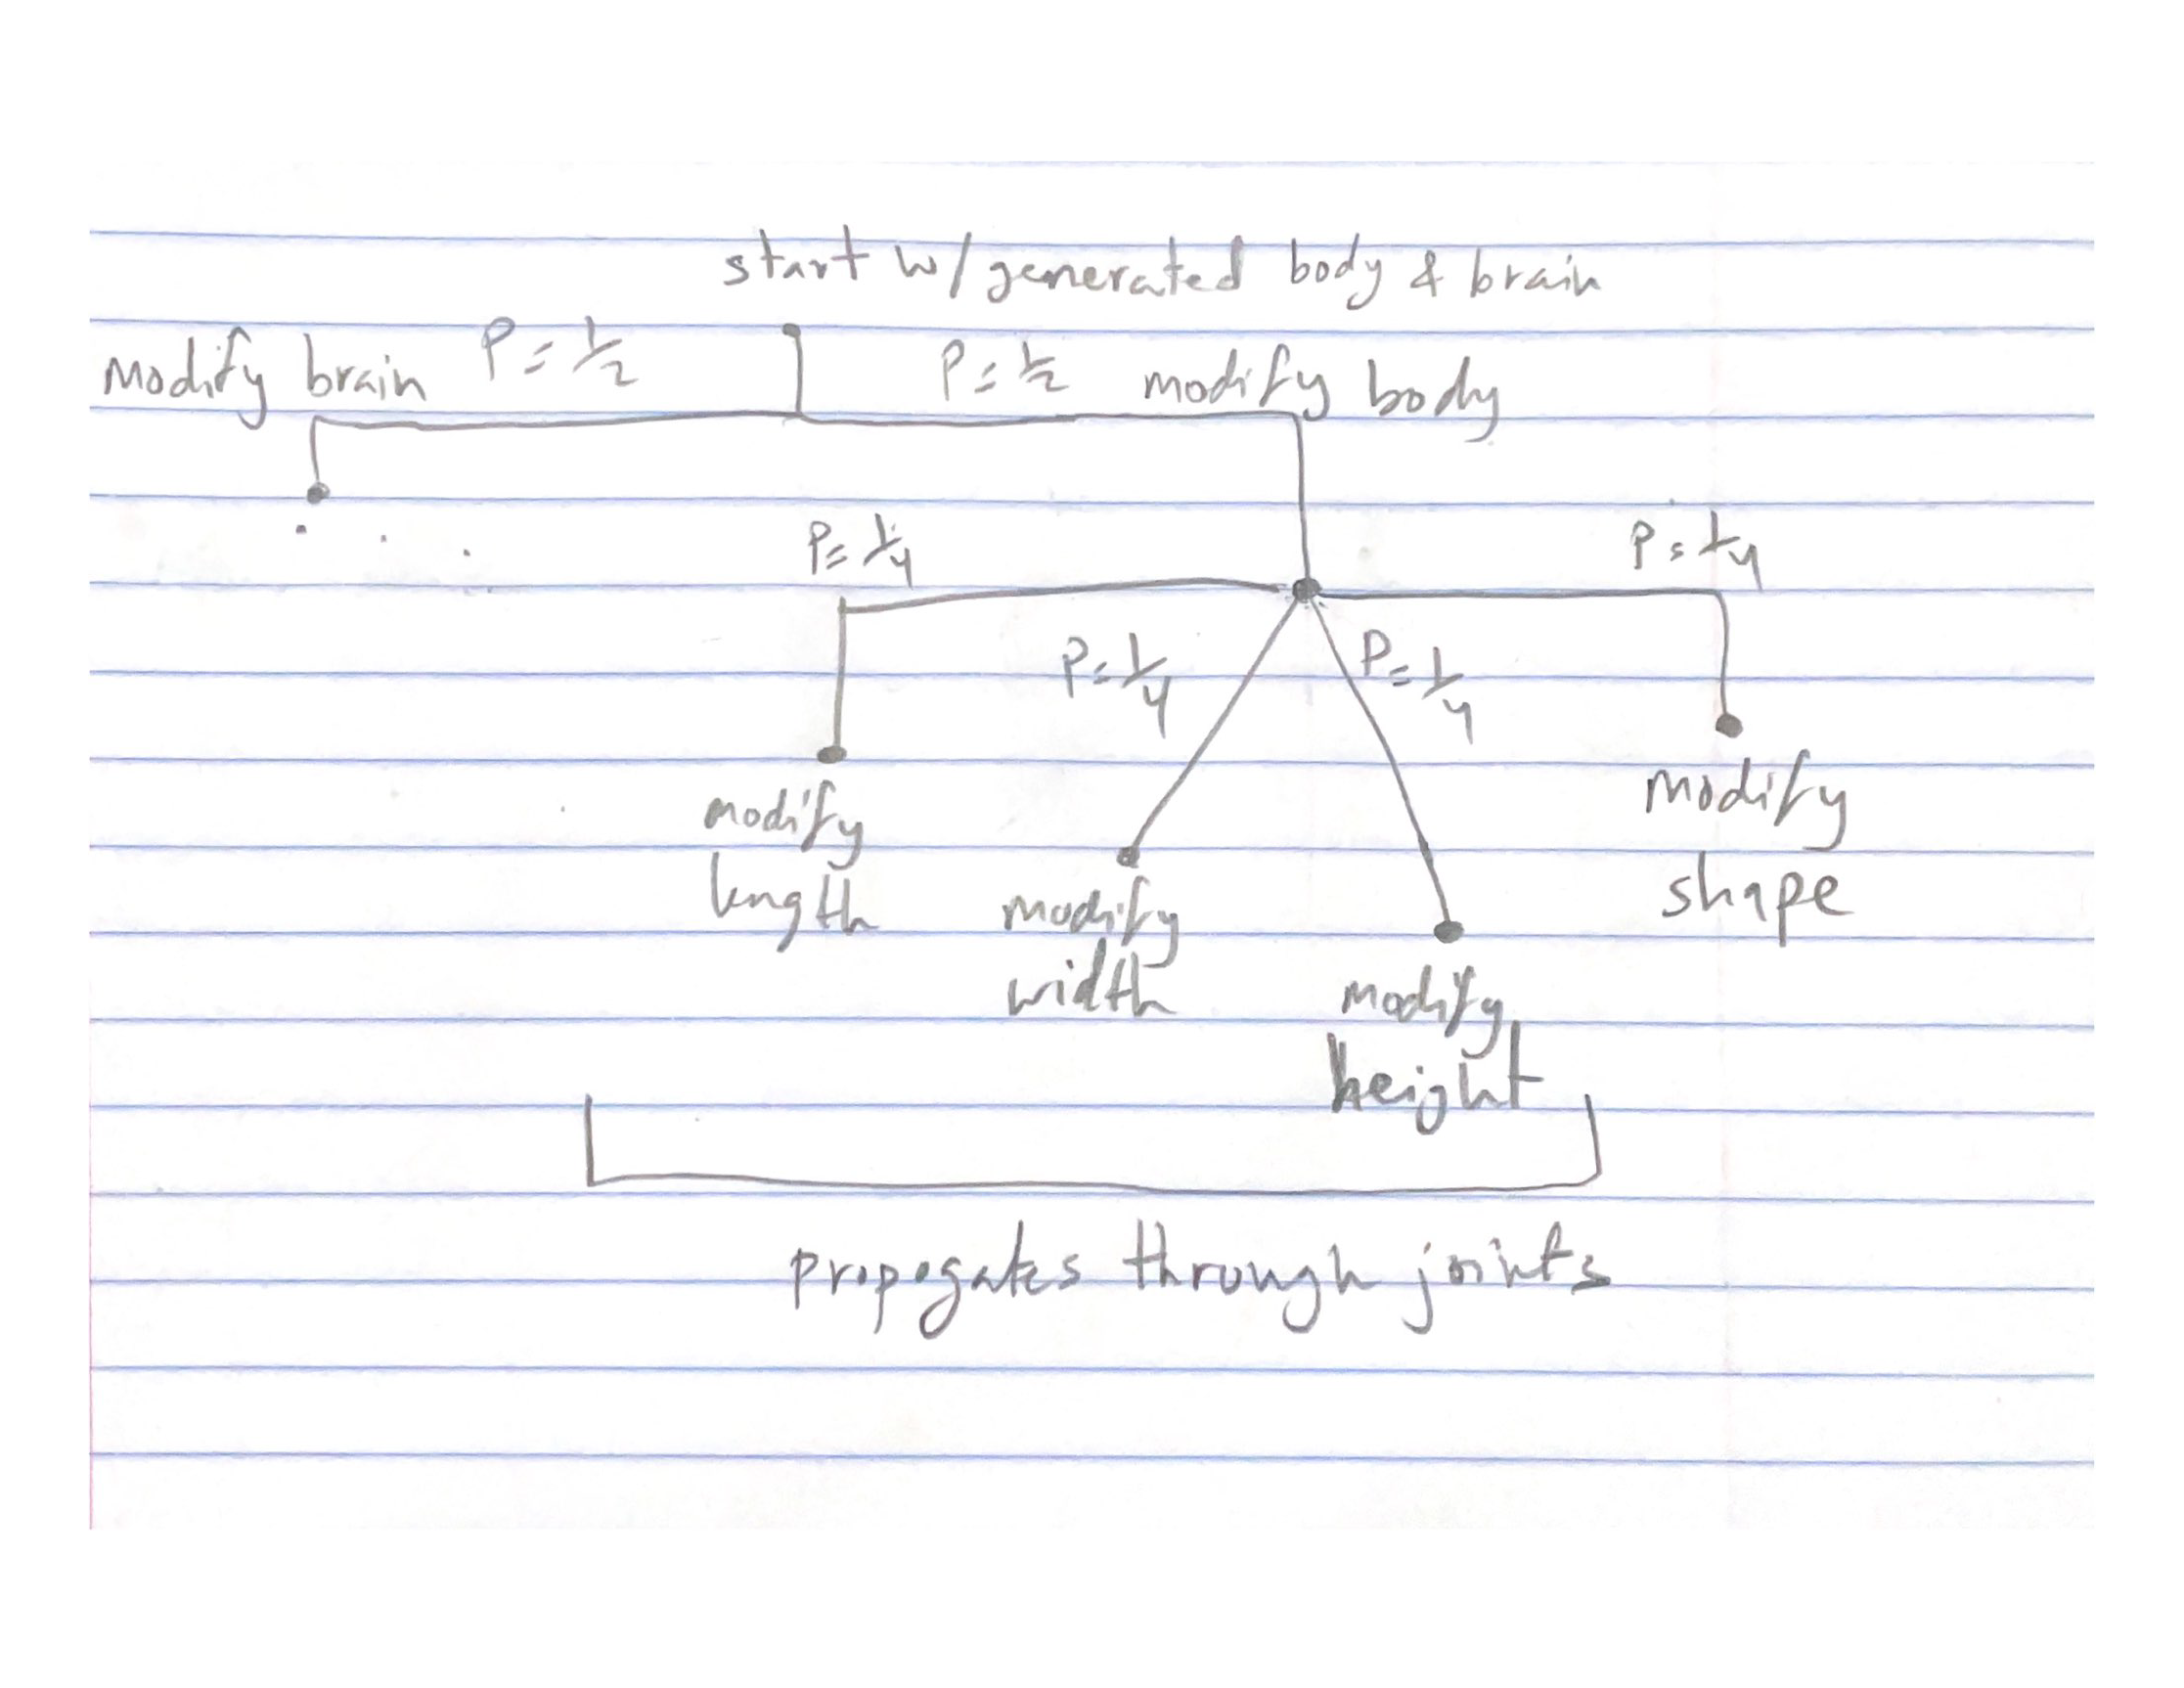 start w/ generated body & brain
Modify brain P = 1/2
P = 1/2 modify body
P = 1/4
P = 1/4
P = 1/4
P = 1/4
modify
length
modify
width
modify
height
modify
shape
propogates through joints